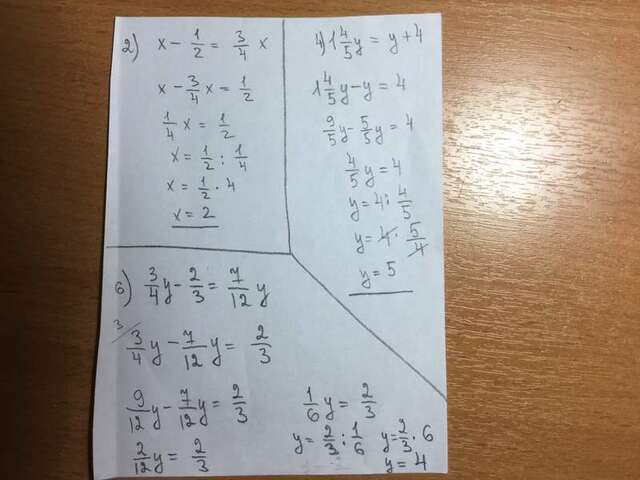 2) x - 1/2 = 3/4 x
x - 3/4 x = 1/2
1/4 x = 1/2
x = 1/2 : 1/4
x = 1/2 · 4
x = 2
4) 1 4/5 y = y + 4
1 4/5 y - y = 4
9/5 y - 5/5 y = 4
4/5 y = 4
y = 4 : 4/5
y = 4 · 5/4
y = 5
6) 3/4 y - 2/3 = 7/12 y
3/ 3/4 y - 7/12 y = 2/3
9/12 y - 7/12 y = 2/3
2/12 y = 2/3
1/6 y = 2/3
y = 2/3 : 1/6 y = 2/3 · 6
y = 4